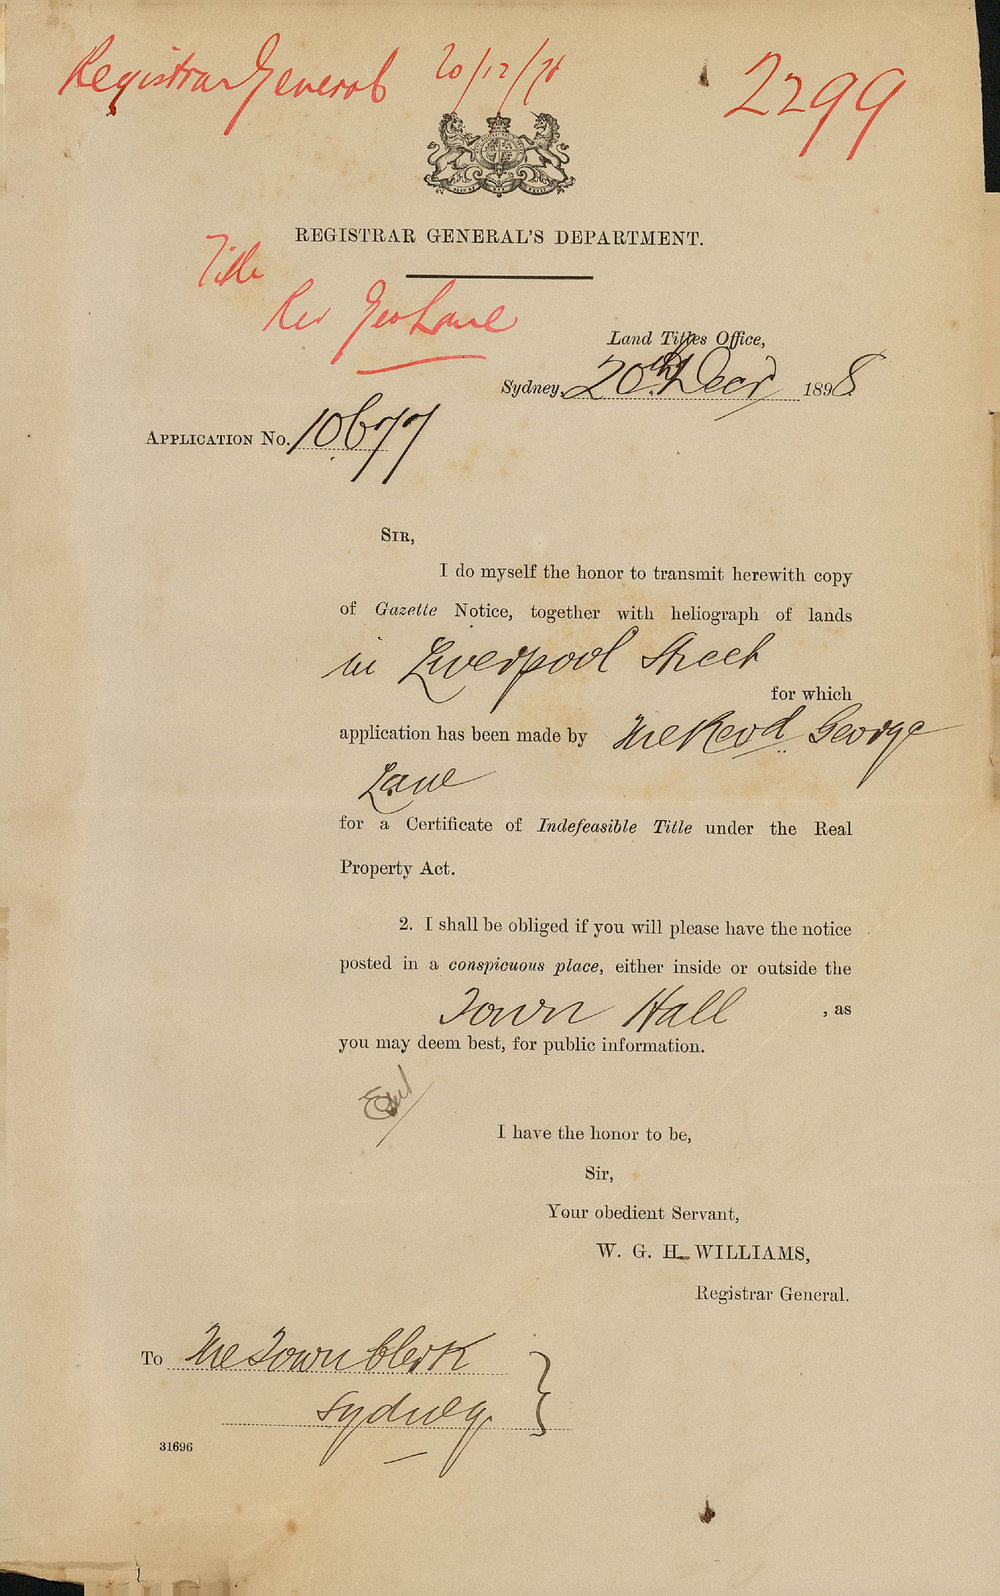 Registrar General 20/12/98
2299
REGISTRAR GENERAL'S DEPARTMENT.
Title
Rev Geo Lane
Land Titles Office,
Sydney, 20th Decr 1898
APPLICATION No. 10677
SIR,
I do myself the honor to transmit herewith copy
of Gazette Notice, together with heliograph of lands
in Liverpool Street
for which
application has been made by The Revd George
Lane
for a Certificate of Indefeasible Title under the Real
Property Act.
2. I shall be obliged if you will please have the notice
posted in a conspicuous place, either inside or outside the
Town Hall , as
you may deem best, for public information.
I have the honor to be,
Sir,
Your obedient Servant,
W. G. H. WILLIAMS,
Registrar General.
To The Town Clerk
Sydney
31696